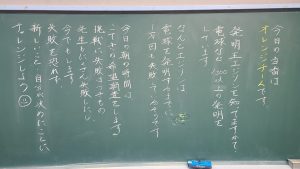 今日の当番は
オレンジチームです。
発明王エジソンを知ってますか？
電球など1300以上の発明を
しています。
なんとエジソンは
電球を発明するまでに
一万回も失敗したそうです。
今日の朝の時間は
挑戦に失敗はつきもの
先生もどんどん失敗したし、
今でもします。
失敗を恐れず、
新しいこと、自分が決めたことに
チャレンジしよう